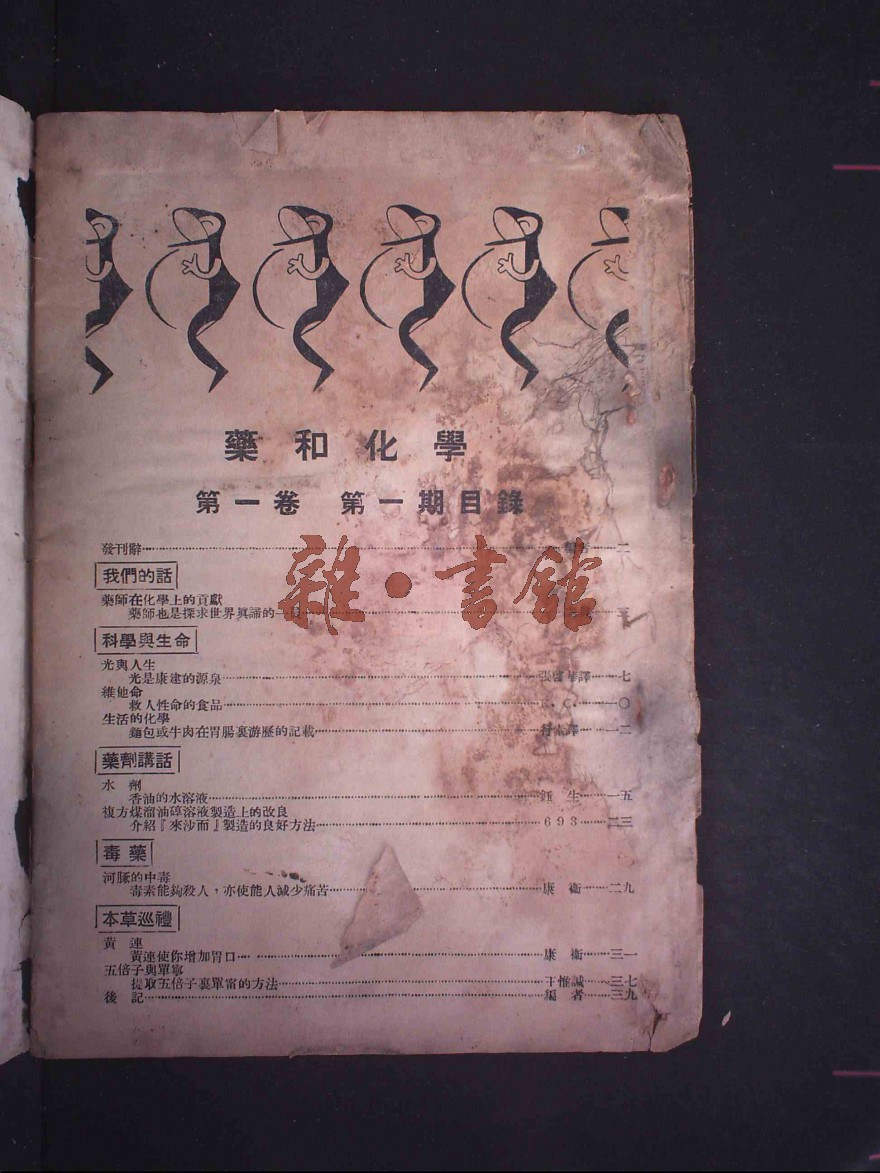 藥和化學
第一卷 第一期目錄
發刊辭 二
我們的話
藥師在化學上的貢獻
藥師也是探求世界眞諦的一員 三
科學與生命
光與人生
光是康建的源泉 張 譯 七
維他命
救人性命的食品 C. 一〇
生活的化學
麵包或牛肉在胃腸裏游歷的記載 一二
藥劑講話
水 劑
香油的水溶液 鍾 生 一五
複方煤溜油醇溶液製造上的改良
介紹『來沙而』製造的良好方法 693 二三
毒藥
河豚的中毒
毒素能夠殺人，亦使能人減少痛苦 康 衛 二九
本草巡禮
黃 連
黃連使你增加胃口 康 衛 三一
五倍子與單寧
提取五倍子裏單甯的方法 王惟誠 三七
後 記 編 者 三九
雜·書館